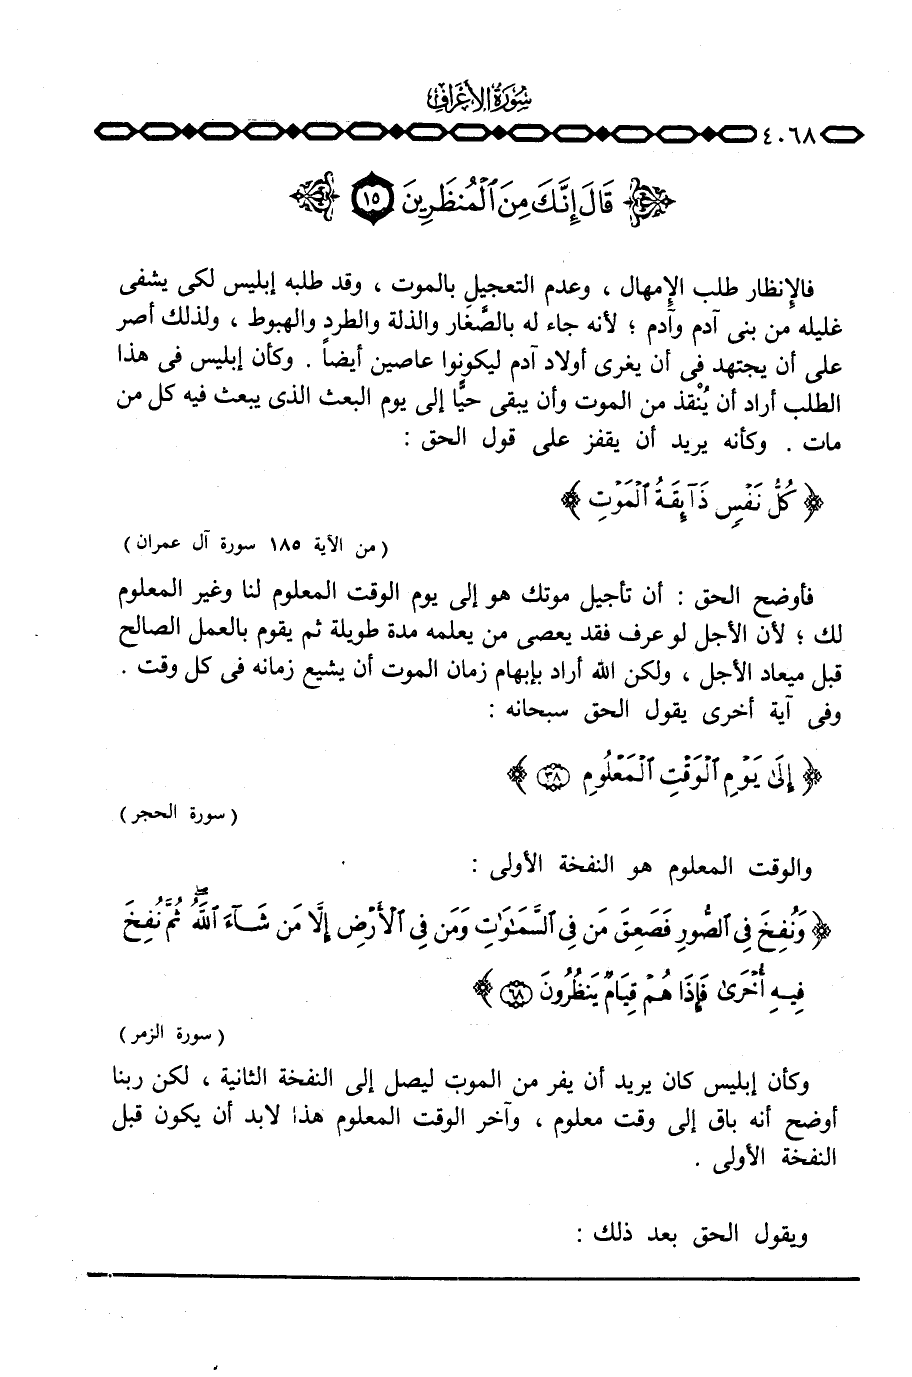 سُورَةُ الأَعْرَافِ
٤٠٦٨
قَالَ إِنَّكَ مِنَ ٱلْمُنظَرِينَ ١٥
فالإنظار طلب الإمهال ، وعدم التعجيل بالموت ، وقد طلبه إبليس لكى يشفى
غليله من بنى آدم وآدم ؛ لأنه جاء له بالصَّغَار والذلة والطرد والهبوط ، ولذلك أصر
على أن يجتهد فى أن يغرى أولاد آدم ليكونوا عاصين أيضاً . وكأن إبليس فى هذا
الطلب أراد أن يُنْقذ من الموت وأن يبقى حيًّا إلى يوم البعث الذى يبعث فيه كل من
مات . وكأنه يريد أن يقفز على قول الحق :
﴿ كُلُّ نَفْسٍ ذَآئِقَةُ ٱلْمَوْتِ ﴾
( من الآية ١٨٥ سورة آل عمران )
فأوضح الحق : أن تأجيل موتك هو إلى يوم الوقت المعلوم لنا وغير المعلوم
لك ؛ لأن الأجل لو عرف فقد يعصى من يعلمه مدة طويلة ثم يقوم بالعمل الصالح
قبل ميعاد الأجل ، ولكن الله أراد بإبهام زمان الموت أن يشيع زمانه فى كل وقت .
وفى آية أخرى يقول الحق سبحانه :
﴿ إِلَىٰ يَوْمِ ٱلْوَقْتِ ٱلْمَعْلُومِ ٣٨ ﴾
( سورة الحجر )
والوقت المعلوم هو النفخة الأولى :
﴿ وَنُفِخَ فِى ٱلصُّورِ فَصَعِقَ مَن فِى ٱلسَّمَٰوَٰتِ وَمَن فِى ٱلْأَرْضِ إِلَّا مَن شَآءَ ٱللَّهُ ۖ ثُمَّ نُفِخَ
فِيهِ أُخْرَىٰ فَإِذَا هُمْ قِيَامٌ يَنظُرُونَ ٦٨ ﴾
( سورة الزمر )
وكأن إبليس كان يريد أن يفر من الموت ليصل إلى النفخة الثانية ، لكن ربنا
أوضح أنه باق إلى وقت معلوم ، وآخر الوقت المعلوم هذا لابد أن يكون قبل
النفخة الأولى .
ويقول الحق بعد ذلك :